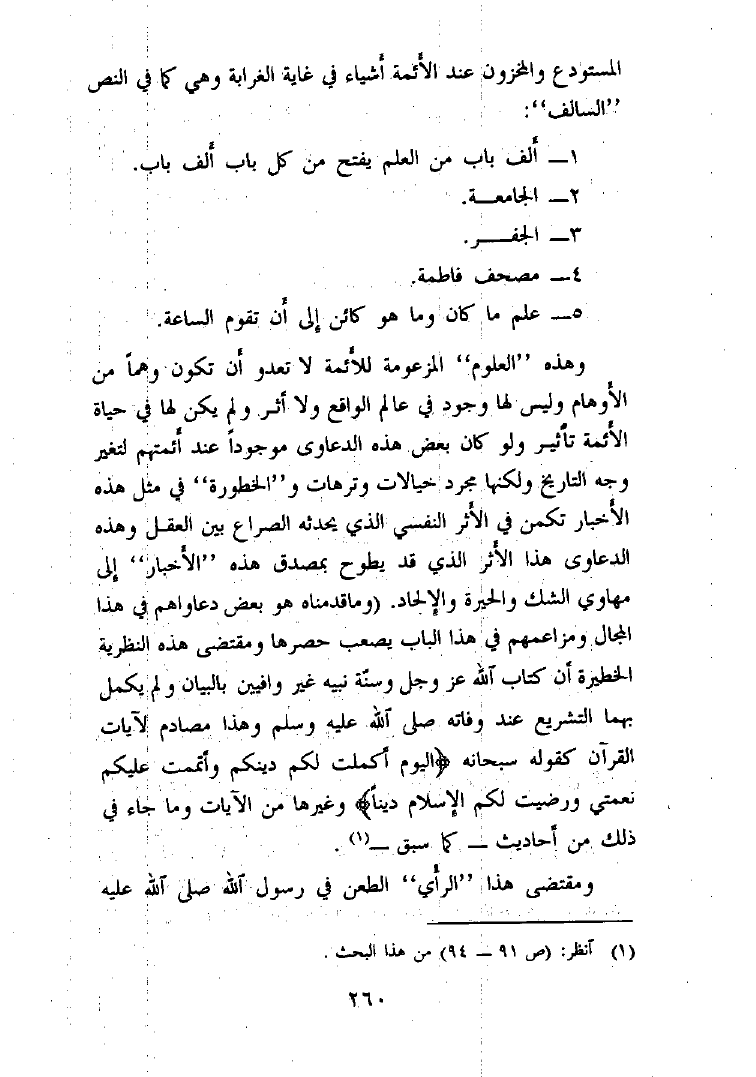 المستودع والمخزون عند الأئمة أشياء في غاية الغرابة وهي كما في النص
”السالف“:
١ــ ألف باب من العلم يفتح من كل باب ألف باب.
٢ــ الجامعــة.
٣ــ الجفــــر.
٤ــ مصحف فاطمة.
٥ــ علم ما كان وما هو كائن إلى أن تقوم الساعة.
وهذه ”العلوم“ المزعومة للأئمة لا تعدو أن تكون وهماً من
الأوهام وليس لها وجود في عالم الواقع ولا أثـر ولم يكن لها في حياة
الأئمة تأثيـر ولو كان بعض هذه الدعاوى موجوداً عند أئمتهم لتغير
وجه التاريخ ولكنها مجرد خيالات وترهات و”الخطورة“ في مثل هذه
الأخبار تكمن في الأثر النفسي الذي يحدثه الصراع بين العقـل وهذه
الدعاوى هذا الأثر الذي قد يطوح بمصدق هذه ”الأخبار“ إلى
مهاوي الشك والحيرة والإلحاد. (وماقدمناه هو بعض دعاواهم في هذا
المجال ومزاعمهم في هذا الباب يصعب حصرها ومقتضى هذه النظرية
الخطيرة أن كتاب الله عز وجل وسنّة نبيه غير وافيين بالبيان ولم يكمل
بهما التشريع عند وفاته صلى الله عليه وسلم وهذا مصادم لآيات
القرآن كقوله سبحانه ﴿اليوم أكملت لكم دينكم وأتممت عليكم
نعمتي ورضيت لكم الإسلام ديناً﴾ وغيرها من الآيات وما جاء في
ذلك من أحاديث ــ كما سبق ــ(١) .
ومقتضى هذا ”الرأي“ الطعن في رسول الله صلى الله عليه
(١) آنظر: (ص ٩١ ــ ٩٤) من هذا البحث .
٢٦٠